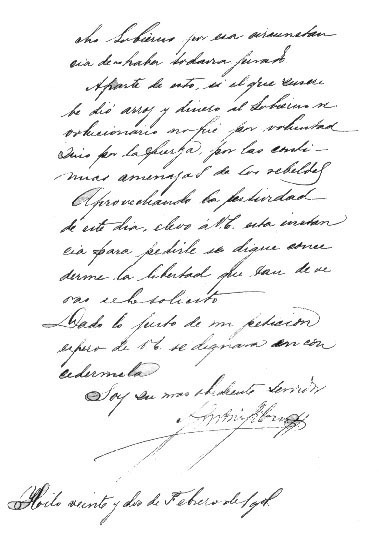 cho Gobierno por esa circunstan
cia de no haber todavia jurado
Aparte de esto, si el que suscri
be dió arroz y dinero al Gobierno re
volucionario no fué por voluntad
sino por la fuerza, por las conti-
nuas amenazas de los rebeldes
Aprovechando la festividad
de este dia, elevo á V.E. esta instan
cia para pedirle se digne conce
derme la libertad que tan de ve
ras se le solicito
Dado lo justo de mi peticion
espero de V.E. se dignara en con
cedermela
Soy su mas obediente servidor
Iloilo veinte y dos de Febrero de 1901.